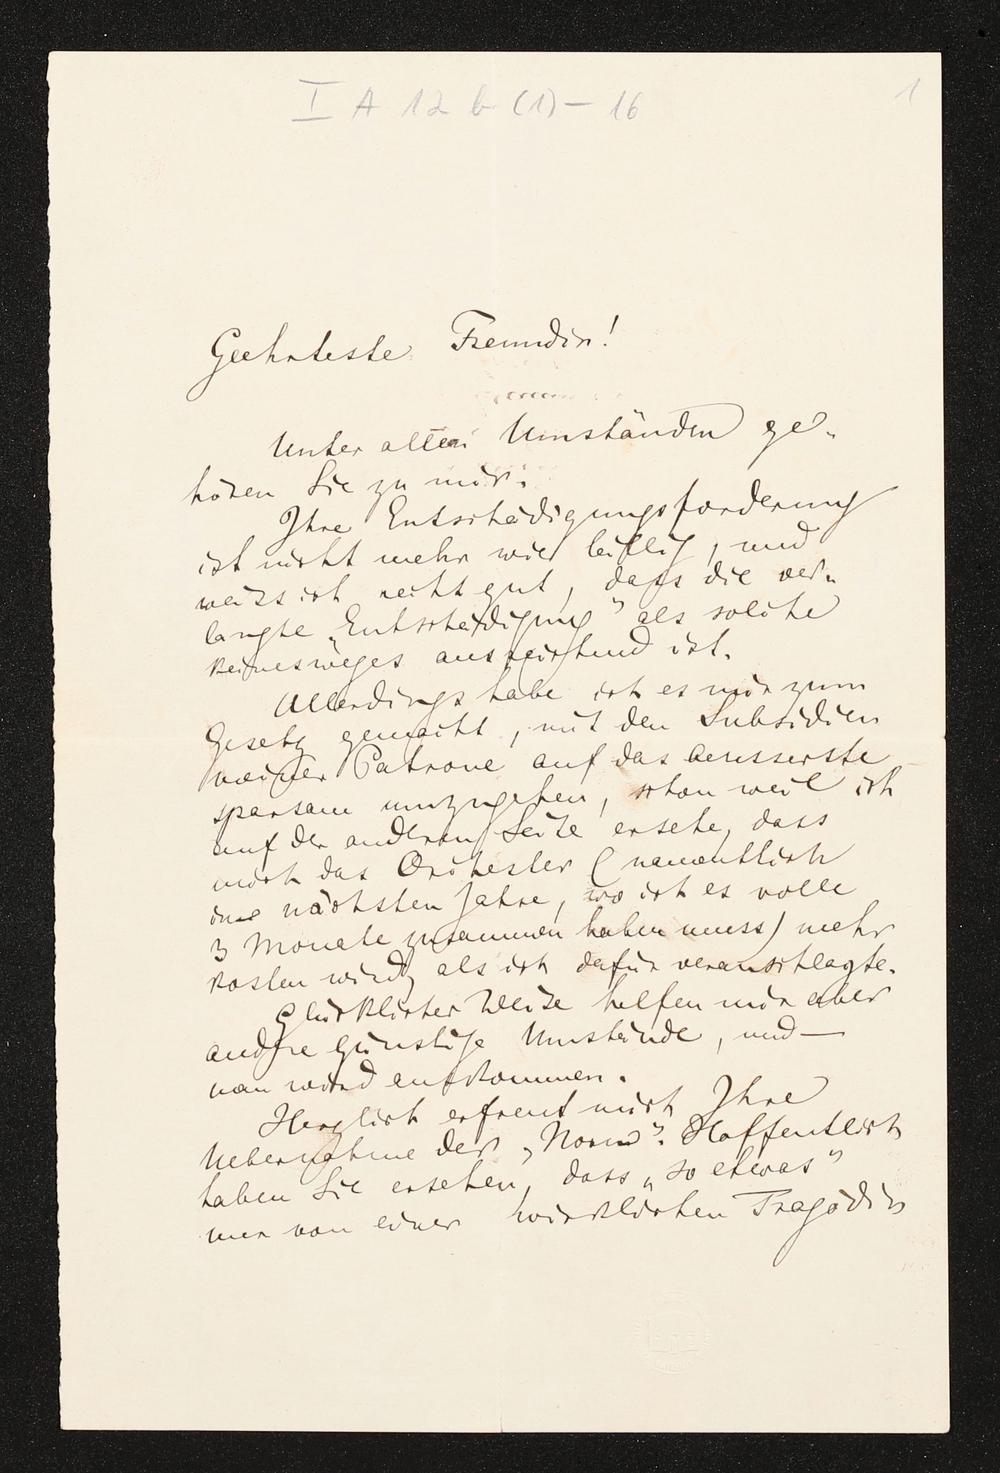 I A 12 b (1) – 16
1
Geehrteste Freundin!
Unter allen Umständen ge-
hören Sie zu mir.
Ihre Entschädigungsforderung
ist nicht mehr wie billig, und
weiss ich recht gut, dass die ver-
langte „Entschädigung“ als solche
keinesweges ausreichend ist.
Allerdings habe ich es mir zum
Gesetz gemacht, mit den Subsidien
meiner Patrone auf das aeusserste
sparsam umzugehen, schon weil ich
auf der anderen Seite ersehe, dass
mich das Orchester (namentlich
im nächsten Jahre, wo ich es volle
3 Monate zusammen haben muss) mehr
kosten wird, als ich dafür veranschlagte.
Glücklicher Weise helfen mir aber
andre günstige Umstände, und —
man wird auskommen.
Herzlich erfreut mich Ihre
Uebernahme der „Norn“. Hoffentlich
haben Sie ersehen, dass „so etwas“
nur von einer wirklichen Tragödin